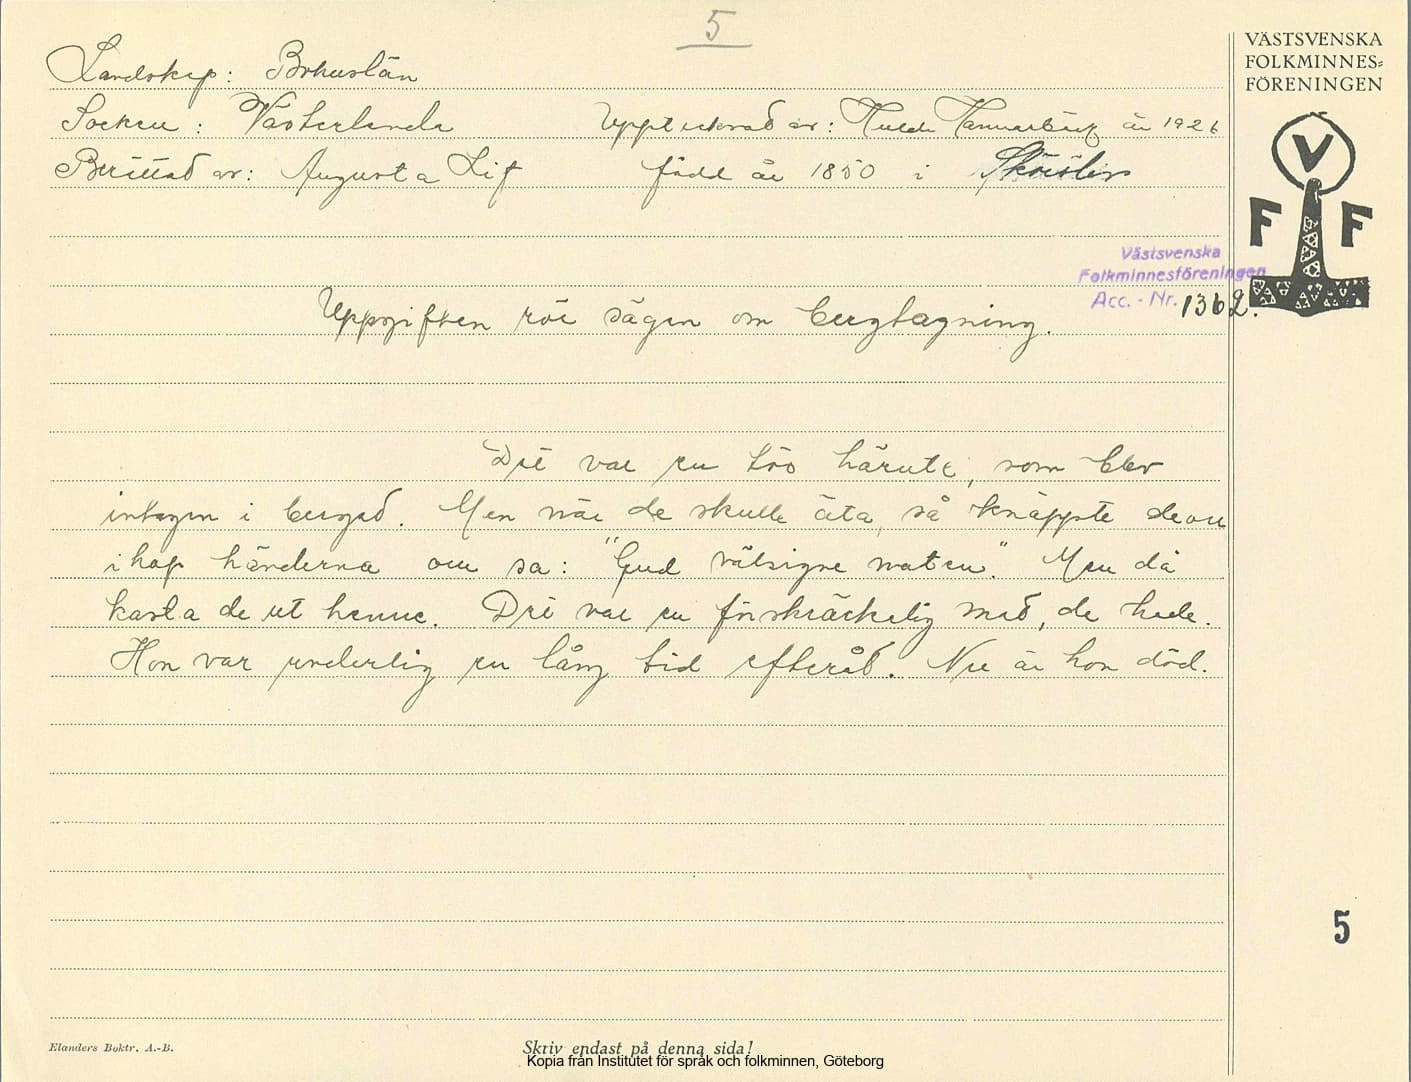 5
VÄSTSVENSKA
FOLKMINNES=
FÖRENINGEN
Landskap: Bohuslän
Socken: Västerlanda Upptecknad av: Hulda Hammarbäck år 1926
Berättad av: Augusta Lif född år 1850 i
V
F F
Västsvenska
Folkminnesföreningen
Acc. - Nr. 1362.
Uppgiften rör sägen om bergtagning.
Det var en tös härute, som blev
intagen i berget. Men när de skulle äta, så knäppte
ihop händerna och sa: "Gud välsigne maten." Men då
kasta de ut henne. Det var en förskräckelig mat, de hade.
Hon var underlig en lång tid efteråt. Nu är hon död.
5
Elanders Boktr. A.-B.
Skriv endast på denna sida!
Kopia från Institutet för språk och folkminnen, Göteborg